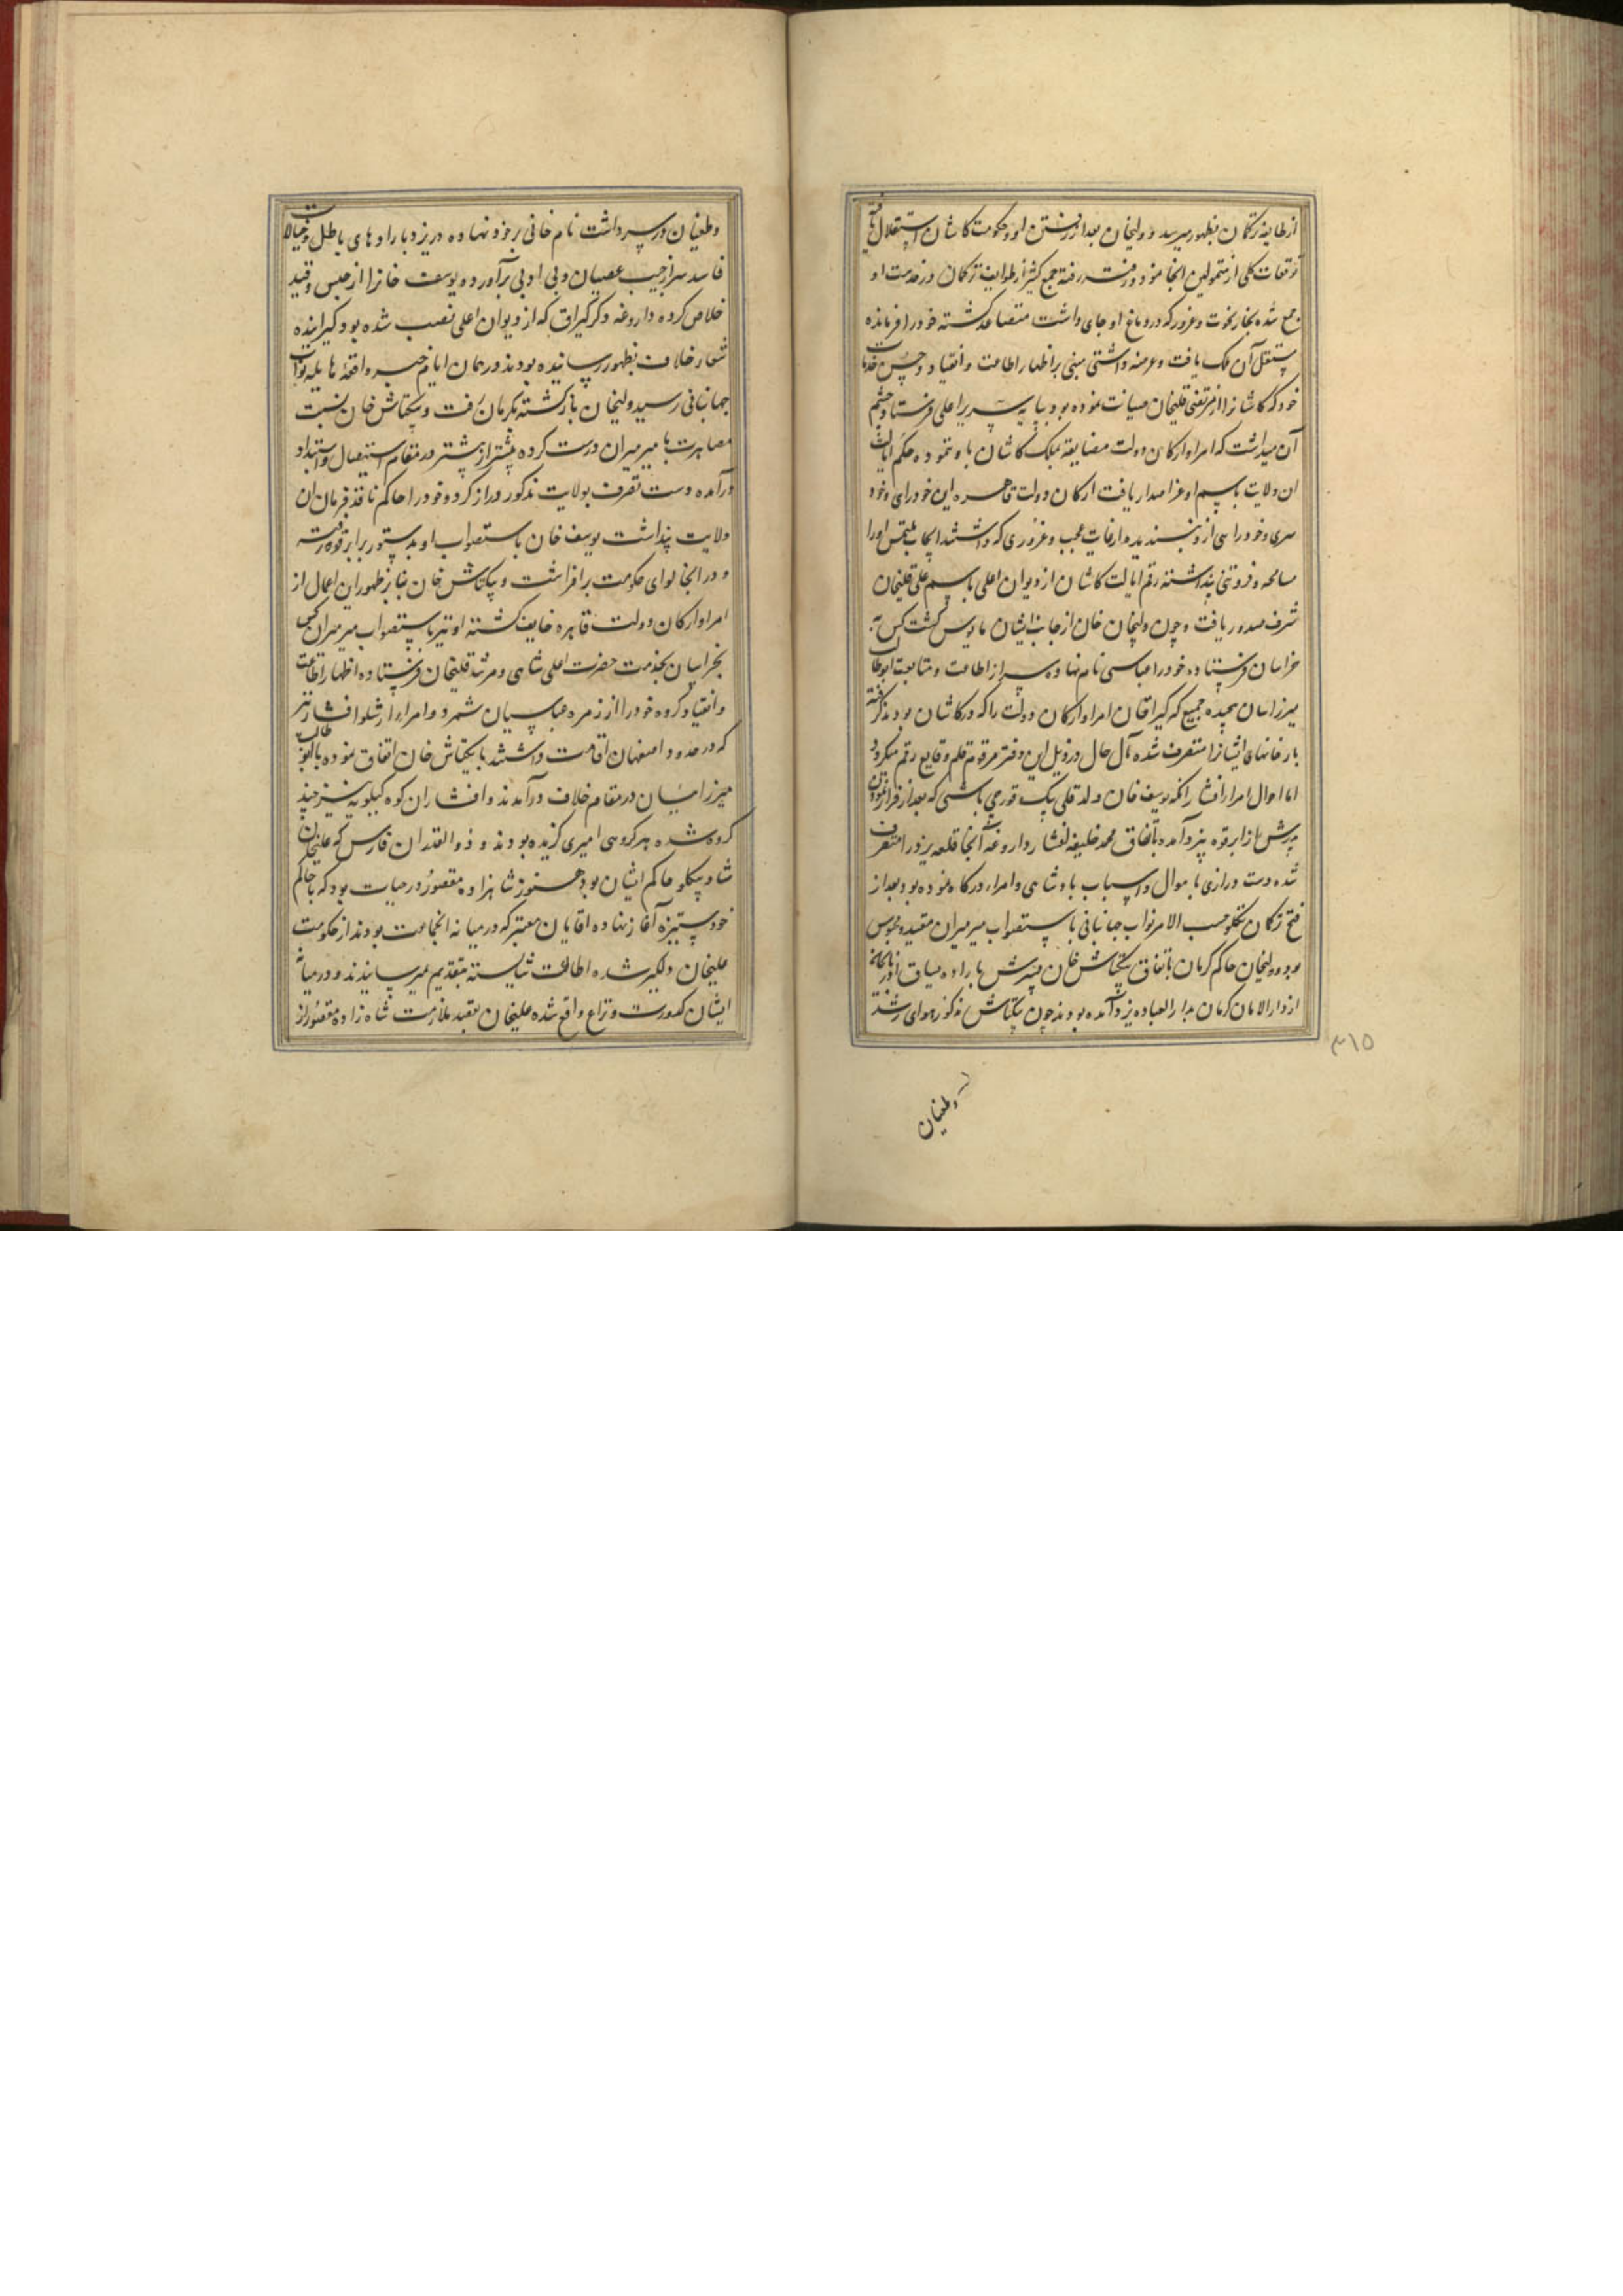 از طایفه ترکمان بظهور میرسید و ولیخان بعد از رفتن او در حکومت کاشان استقلال یافته
توقعات کلی از متمولین آنجا نمود و رفته رفته جمع کثیر از طوایف ترکمان در خدمت او
جمع شده بخار نخوت و غرور که در دماغ او جای داشت متصاعد کشته خود را فرمانده
مستقل آن ملک یافت و عرضه داشتی مبنی بر اظهار اطاعت و انقیاد و حسن خدمات
خود که کاشانرا از مرتضی قلیخان صیانت نموده بود بپایه سریر اعلی فرستاد و چشم
آن میداشت که امرا و ارکان دولت مضایقه بملک کاشان باو ننموده حکم ایالت
ان ولایت باسم او عز اصدار یافت ارکان دولت قاهره این خودرای و خود
سری و خودراسی از و نپسندیده از غایت عجب و غروری که داشتند ایجاب ملتمس او را
مسامحه و فروتنی پنداشته رقم ایالت کاشان از دیوان اعلی باسم علی قلیخان
شرف صدور یافت و چون ولیخان خان از جانب ایشان مایوس کشت کس به
خراسان فرستاده خود را عباسی نام نهاده سر از اطاعت و متابعت ابوطالب
میرزا سان پیچیده جمیع که کیراقان امرا و ارکان دولت را که در کاشان بودند گرفته
بارخانهای ایشانرا متصرف شده مآل حال در ذیل این دفتر مرقوم قلم وقایع رقم میکردد
اما احوال امرا افشار آنکه یوسف خان ولد قلی بیک قورچی باشی که بعد از فرار نمودن
پدرش از ابرقوه بیزد آمده باتفاق محمد خلیفه افشار داروغه آنجا قلعه یزد را متصرف
شده دست درازی باموال و اسباب پادشاهی و امراء درکاه نموده بود بعد از
فتح ترکمان تکلو حسب الامر نواب جهانبانی باستصواب میرمیران مقید و محبوس
بود و ولیخان حاکم کرمان باتفاق بیکتاش خان پسرش باراده سیاق آذربایجان
از دار الامان کرمان بدار العباده یزد آمده بودند چون بیکتاش مذکور هوای رشد
و طغیان
۳۱۵
و طغیان در سر داشت نام خانی بر خود نهاده در یزد باراد‌های باطل و خیالات
فاسد سر از جیب عصیان و بی ادبی برآورده یوسف خانرا از حبس و قید
خلاص کرده داروغه و کرکیراق که از دیوان اعلی نصب شده بود کیرانده
شعار خلاف بظهور رسانیده بودند در همان ایام خبر واقعه هایله نواب
جهانبانی رسید ولیخان بازکشته بکرمان رفت و بیکتاش خان نسبت
مصاهرت با میرمیران درست کرده بیشتر از پیشتر در مقام استقلال و استبداد
درآمده دست تصرف بولایت مذکور دراز کرد و خود را حاکم نافذ فرمان ان
ولایت پنداشت یوسف خان باستصواب او بدستور بابرقوه رفته
و در انجا لوای حکومت برافراشت و بیکتاش خان بنابر ظهور این اعمال از
امرا و ارکان دولت قاهره خایف کشته او نیز باستصواب میرمیران کس
بخراسان بخدمت حضرت اعلی شاهی و مرشد قلیخان فرستاده اظهار اطاعت
و انقیاد کروه خود را از زمره عباسیان شمرد و امراء ارشلو افشار نیز
که در حدود اصفهان اقامت داشتند با بیکتاش خان اتفاق نموده با ابوطالب
میرزاییان در مقام خلاف درآمدند و افشاران کوه کیلویه نیز چند
کروه شده هر کروهی امیری کزیده بودند و ذوالقدران فارس که علیخان
شاد بیکلو حاکم ایشان بود هنوز شاهزاده مغفور در حیات بود که با حاکم
خود ستیزه آغاز نهاده اقایان معتبر که در میانه انجماعت بودند از حکومت
علیخان دلکیر شده اطاعت شایسته بتقدیم نمیرسانیدند و در میانه
ایشان کدورت و نزاع واقع شده علیخان بقصد ملازمت شاه زاده مغفور از